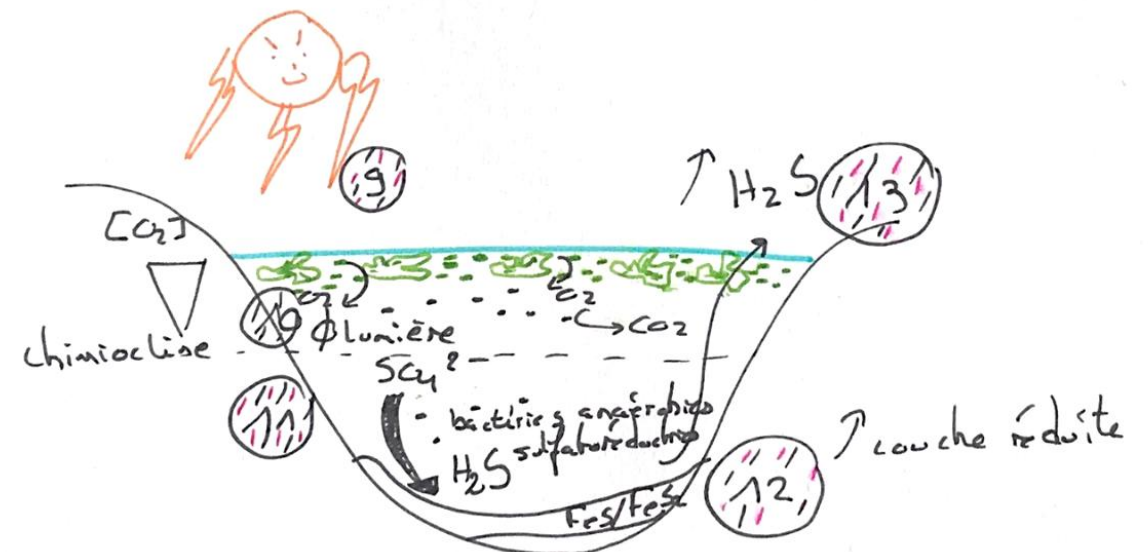 9
↗ H2S 13
[O2]
O2
O2
CO2
10
Ø lumière
chimiocline
SO4²-
11
bactéries anaérobies
sulfatoréductrices
H2S
↗ couche réduite
12
FeS/FeS2